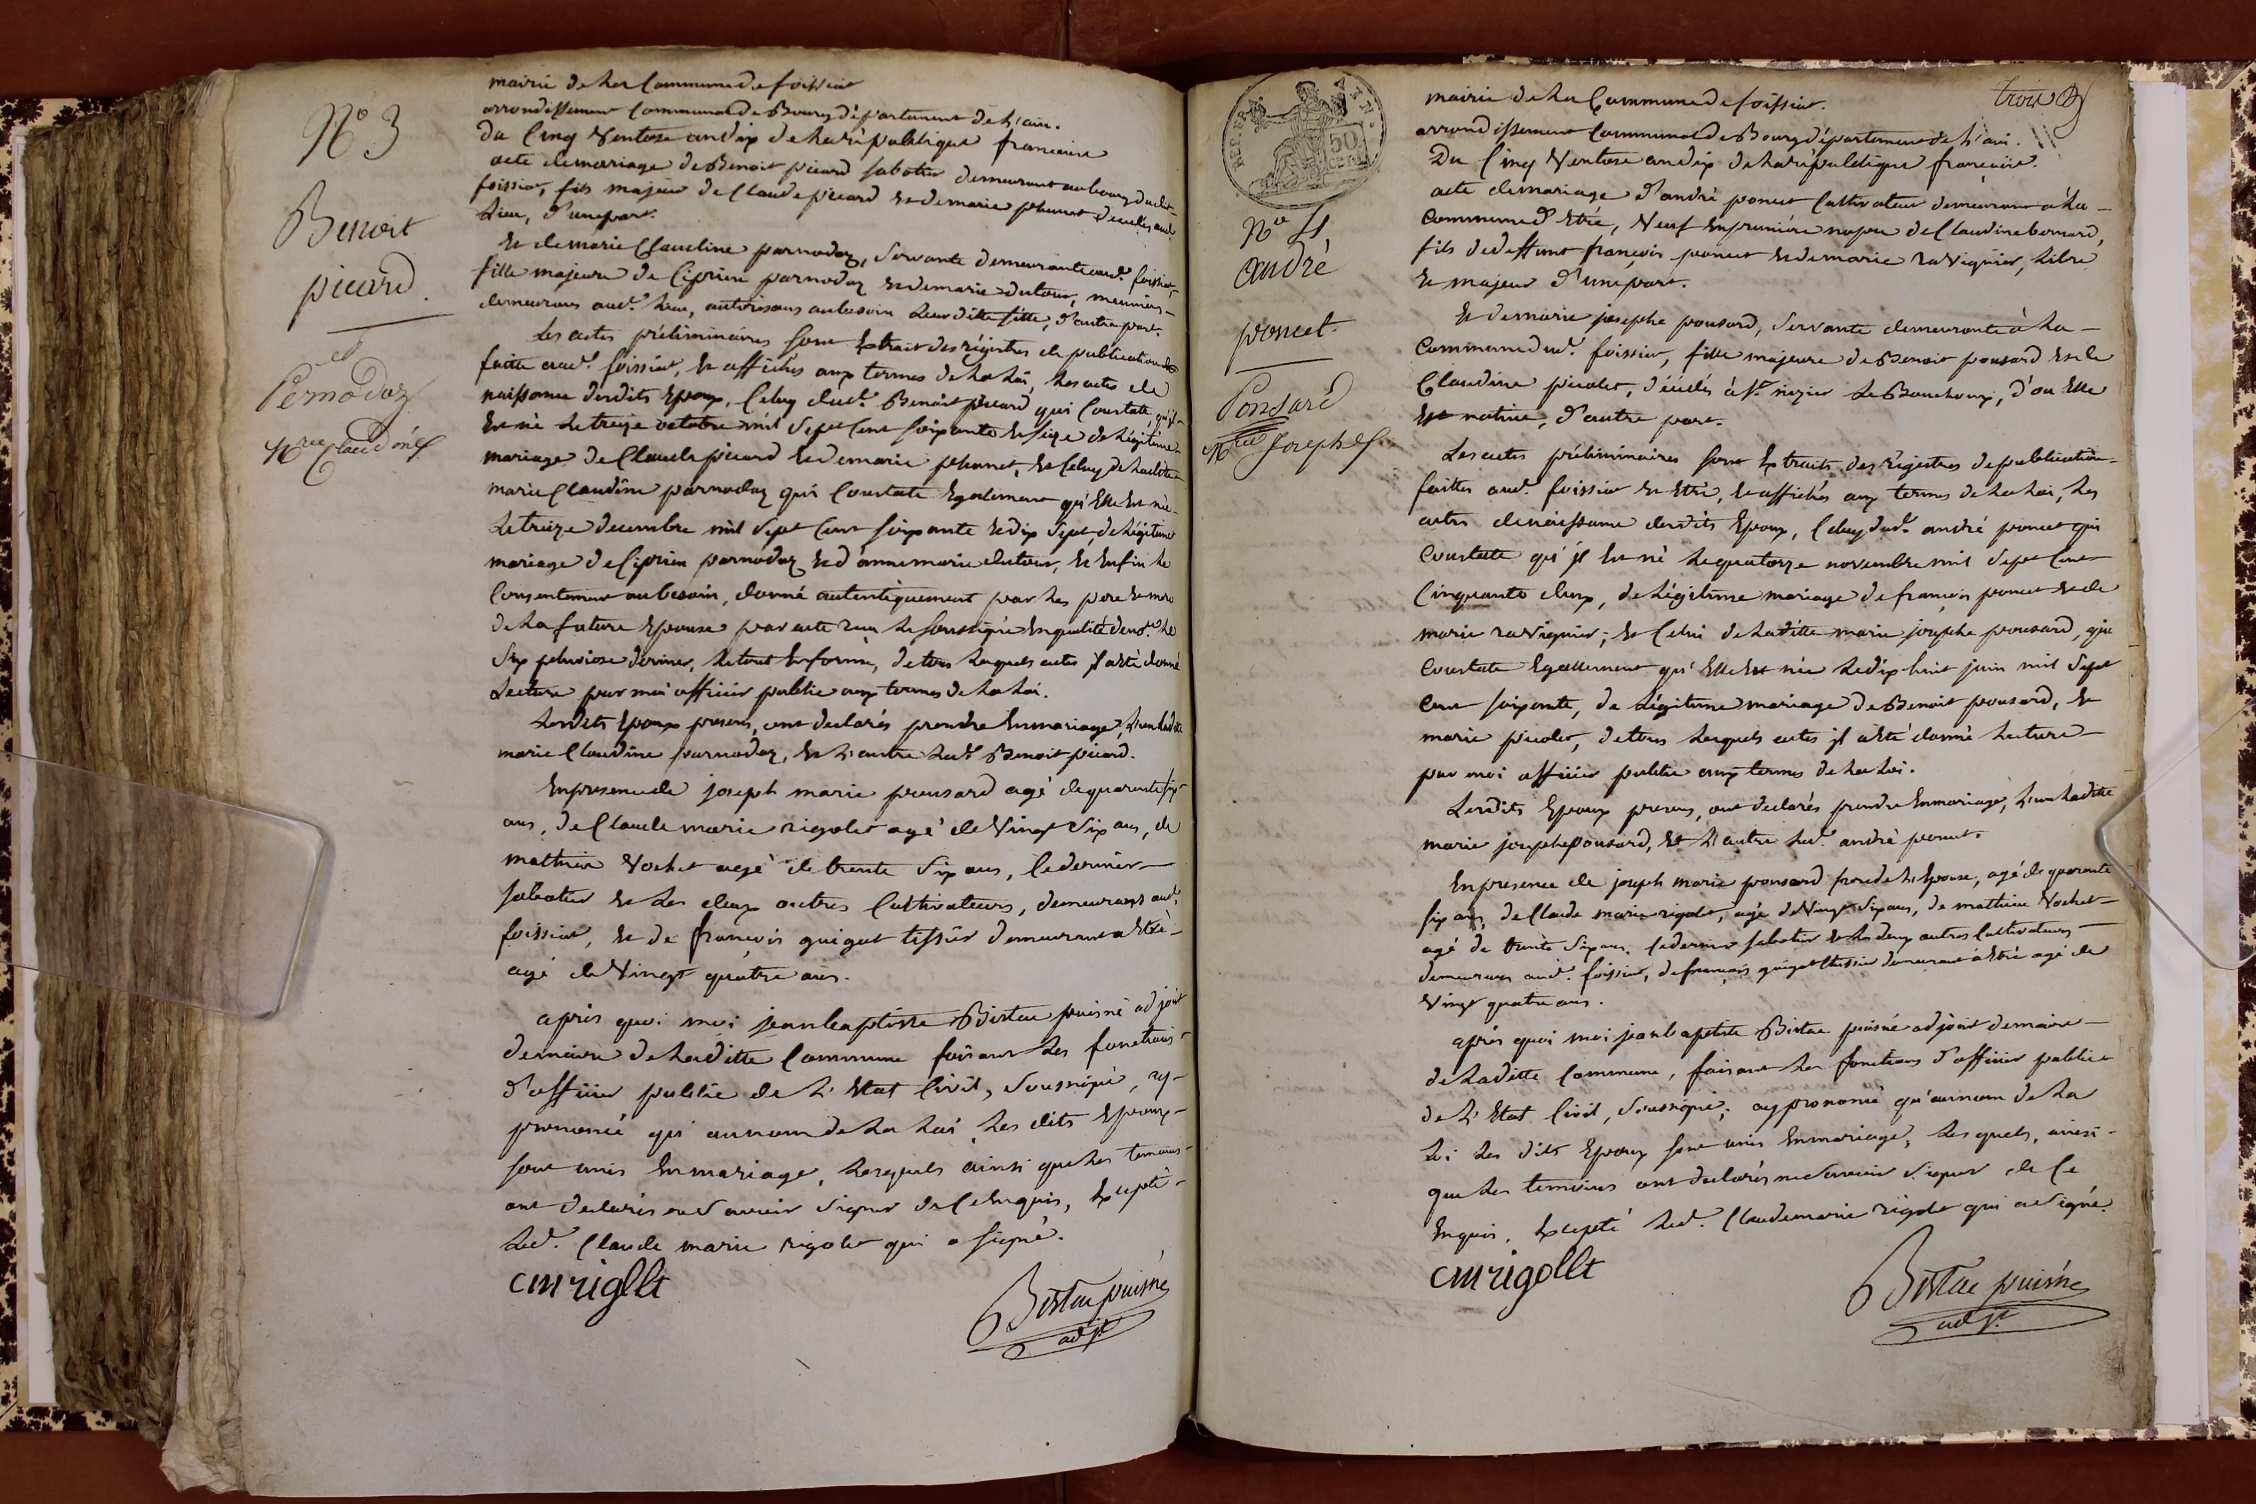 N° 3
Benoit
picard
et
Pernodaz
Mrie Claudine
mairie de La Commune de foissiat
arrondissement Communal de Bourg département de L'ain.
Du Cinq Ventose an dix de La république francaise
acte de mariage de Benoit picard sabotier demeurant au bourg dudit
foissiat, fils majeur de Claude picard et de marie decedés aud.
Lieu, d'une part.
Et de marie Claudine parnodaz, servante demeurante aud. foissiat,
fille majeure de Ciprien parnodaz et de marie dutour, meuniers
demeurans aud. Lieu, autorisans au besoin Leur ditte fille, d'autre part.
Les actes préliminaires sont Extrait des régistres de publication de
faitte aud. foissiat, et affichés aux termes de La Loi, Les actes de
naissance desdits Epoux, Celuy dud. Benoit picard qui Constate qu'il
Est né Le treize octobre mil Sept Cent soixante et seize de Légitime
mariage de Claude picard et de marie et Celuy de Laditte
marie Claudine parnodaz qui Constate Egalement qu'Elle Est née
Le treize decembre mil Sept Cent soixante et dix Sept, de Légitime
mariage de Ciprien parnodaz et d'anne marie dutour, et Enfin Le
Consentement au besoin, donné autentiquement par Les pere et mere
de La future Epouse par acte reçu Le soussigné En qualité de no.re Le
Six pluviose dernier, Le tout En forme, de tous Lesquels actes il a Eté donné
Lecture par moi officier public aux termes de La Loi.
Lesdits Epoux presens, ont declarés prendre En mariage, L'un Laditte
marie Claudine parnodaz, et L'autre Led. Benoit picard.
En presence de joseph marie ponsard agé de quarante six
ans, de Claude marie rigolet agé de Vingt Six ans, de
mathieu Vochet agé de trente Six ans, Le dernier
sabotier et Les deux autres Cultivateurs, demeurans aud.
foissiat, et de francois guigat tissier demeurant a Etré
agé de Vingt quatre ans.
après quoi moi jean baptiste Bistac puisné adjoint
de maire de Laditte Commune faisant Les fonctions
d'officier public de L'Etat Civil, Soussigné, ay
prononcé qu'au nom de La Loi, Les dits Epoux
sont unis En mariage, Lesquels ainsi que Les temoins
ont declarés ne Savoir Signer de Ce Enquis, Excepté
Led. Claude marie rigolet qui a signé.
cm rigollt
Bistac puisné
adjt
trois
REP. FRA.
50
CENT.
N° 4
andré
poncet.
Ponsard
Mrie Josephe
mairie de La Commune de foissiat.
arrondissement Communal de Bourg département de L'ain.
Du Cinq Ventose an dix de La république francaise.
acte de mariage d'andré poncet Cultivateur demeurant à La
Commune d'Etré, Veuf En premiére nopce de Claudine bernard,
fils de deffunt françois poncet et de marie ravignier, Libre
et majeur d'une part.
Et de marie josephe ponsard, Servante demeurante à La
Commune dud. foissiat, fille majeure de Benoit ponsard et de
Claudine picolet, décédés à St. nizier Le Bouchoux, d'ou Elle
Est native, d'autre part.
Les actes préliminaires sont Extraits des régistres de publication
faittes aud. foissiat et Etré, et affichés aux termes de La Loi, Les
actes de naissance desdits Epoux, Celuy dud. andré poncet qui
Constate qu'il Est né Le quatorze novembre mil Sept Cent
Cinquante deux, de Légitime mariage de francois poncet et de
marie ravignier; et Celui de Laditte marie josephe ponsard, qui
Constate Egallement qu'Elle Est née Le dix huit juin mil Sept
Cent soixante, de Légitime mariage de Benoit ponsard, et
marie picolet, de tous Lesquels actes il a Eté donné Lecture
par moi officier public aux termes de La Loi.
Lesdits Epoux presens, ont declarés prendre En mariage, L'un Laditte
marie josephe ponsard, Et L'autre Led. andré poncet.
En presence de joseph marie ponsard frere de L'Epouse, agé de quarante
six ans, de Claude marie rigolet, agé de Vingt Six ans, de mathieu Vochet
agé de trente Six ans, Le dernier sabotier et Les deux autres Cultivateurs
demeurans aud. foissiat, de francois guigat tissier demeurant a Etré agé de
Vingt quatre ans.
après quoi moi jean baptiste Bistac puisné adjoint de maire
de Laditte Commune, faisant Les fonctions d'officier public
de L'Etat Civil, Soussigné, ay prononcé qu'au nom de La
Loi Les dits Epoux sont unis En mariage, Lesquels, ainsi
que Les temoins ont declarés ne Savoir Signer de Ce
Enquis, Excepté Led. Claude marie rigolet qui a Signé.
cm rigollt
Bistac puisné
adjt.